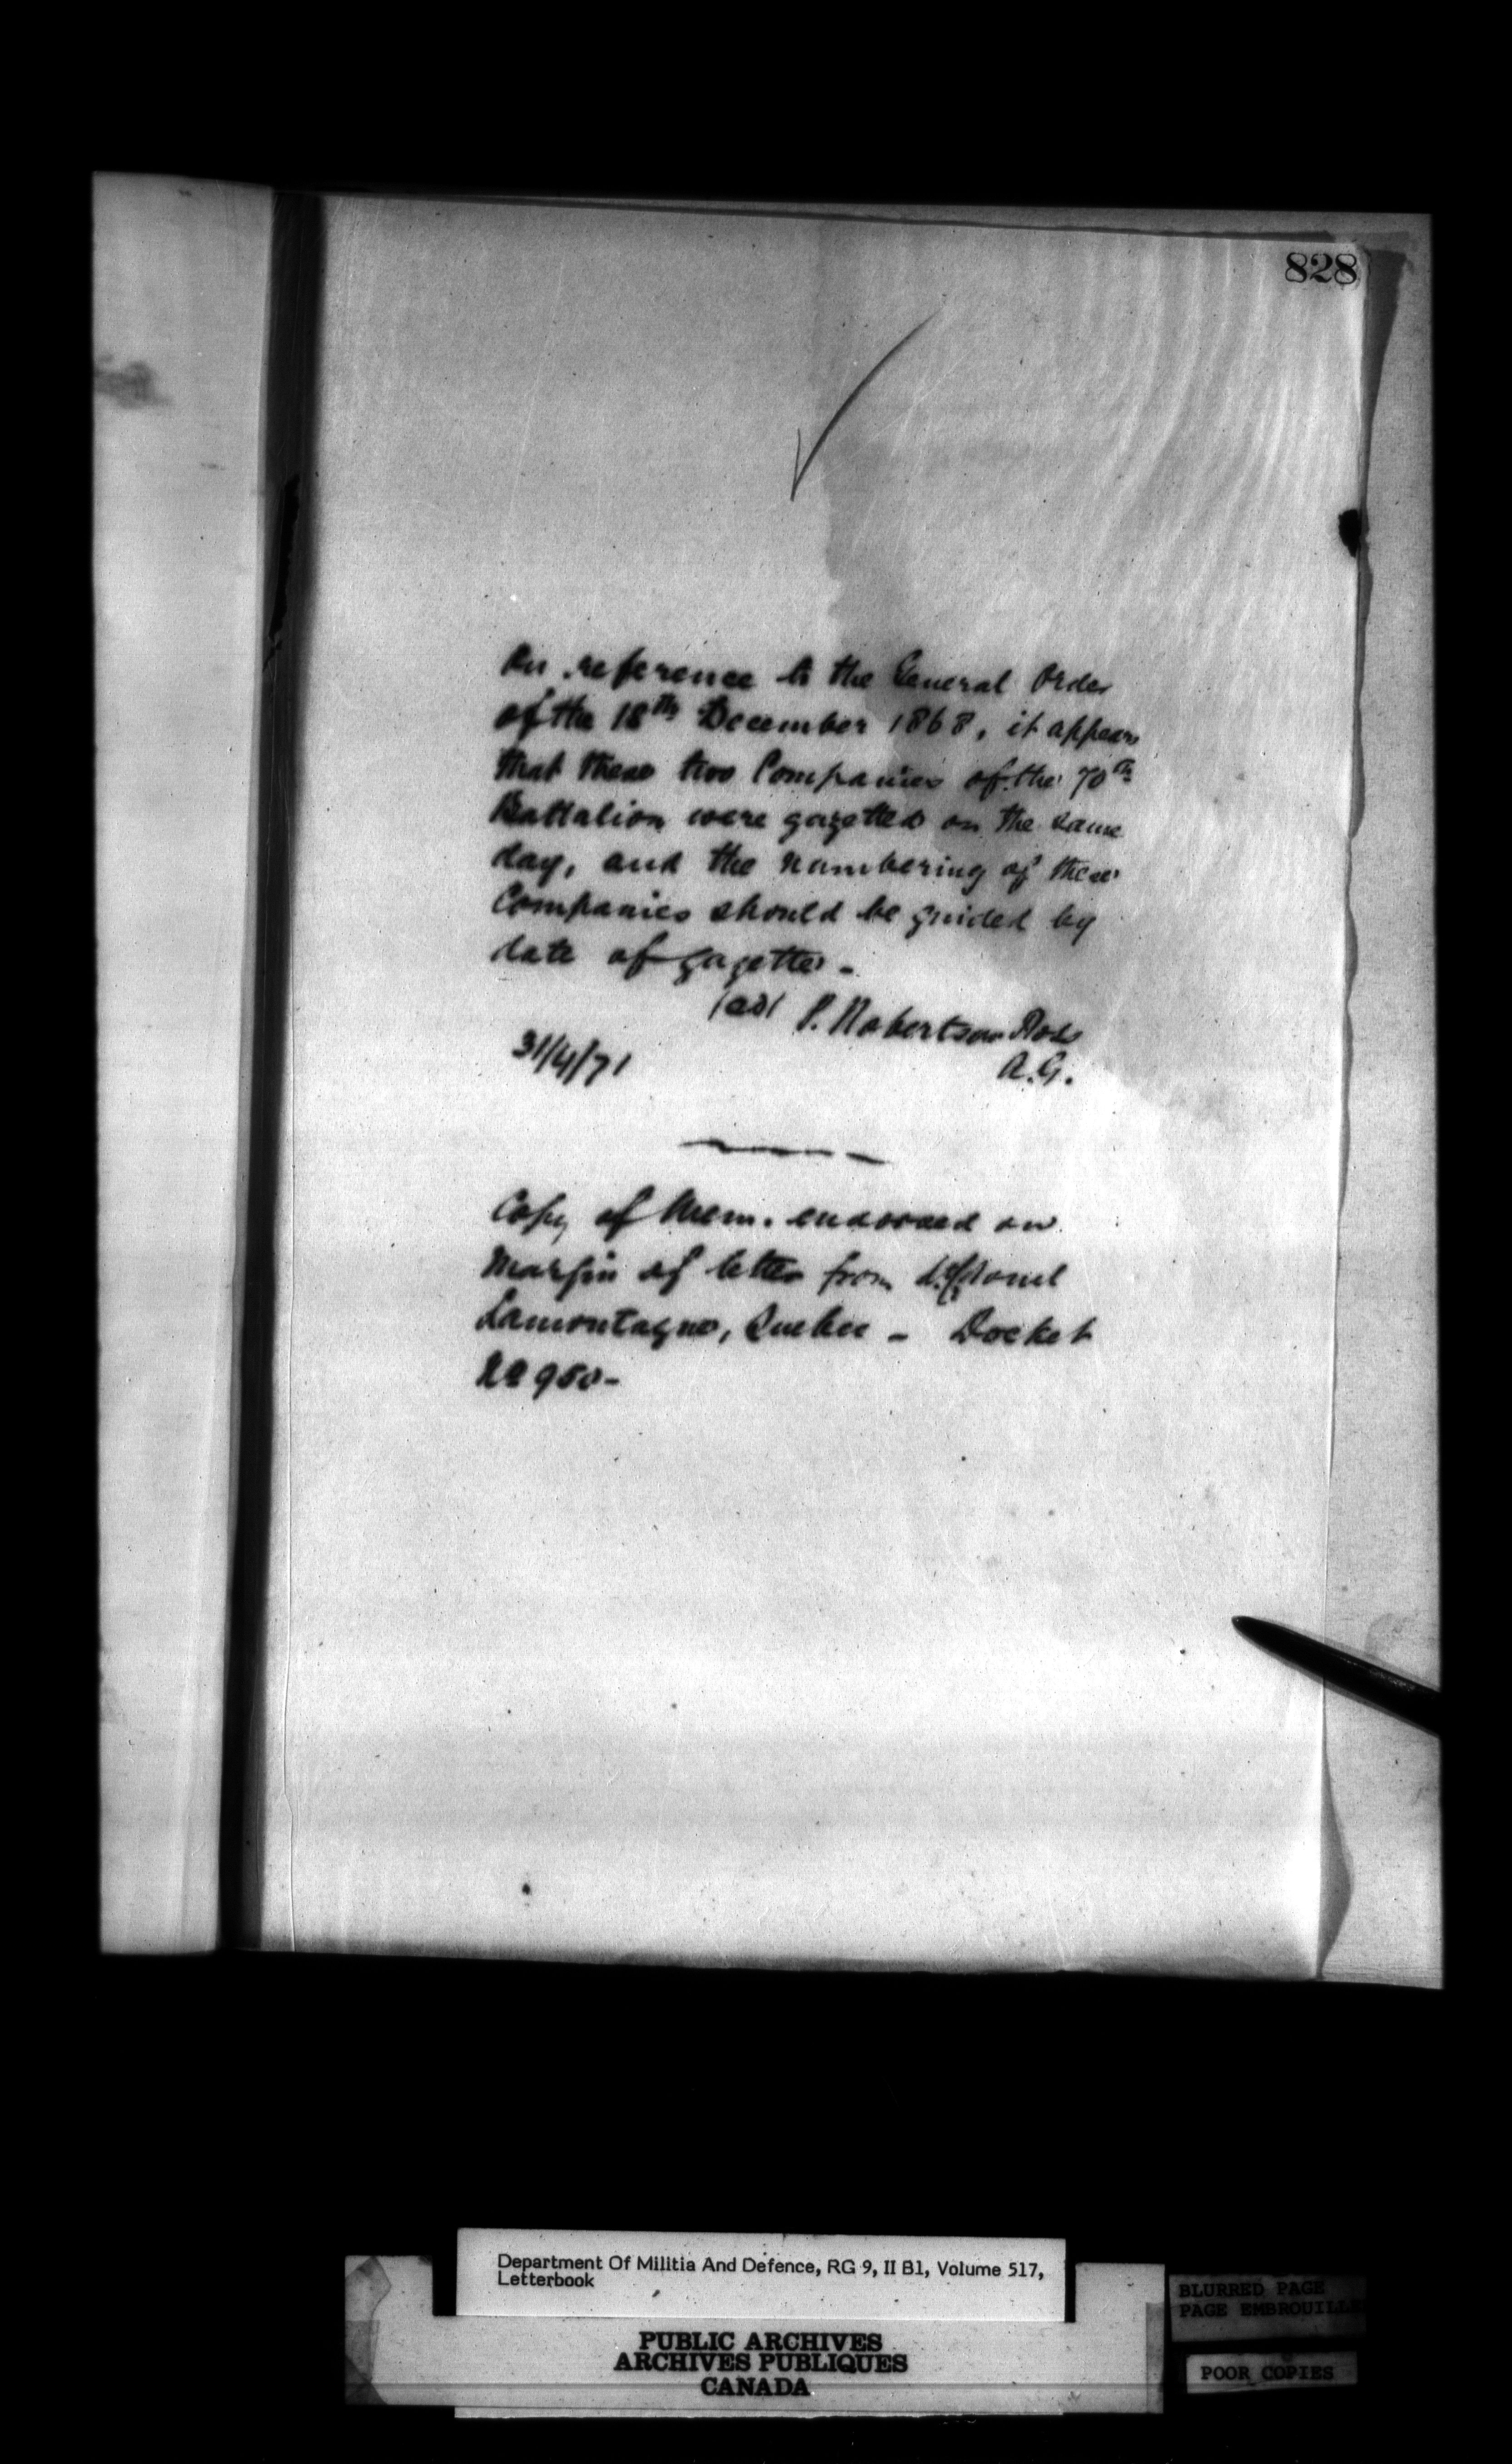 828
On reference to the General Order
of the 18th December 1868, it appears
that these two Companies of the 70th
Battalion were gazetted on the same
day, and the numbering of these
Companies should be guided by
date of gazette -
P. Robertson Ross
A.G.
31/4/71
Copy of Mem. endorsed on
Margin of letter from Lt. Colonel
Lamontagne, Quebec - Docket
No 950-
Department Of Militia And Defence, RG 9, II B1, Volume 517,
Letterbook
PUBLIC ARCHIVES
ARCHIVES PUBLIQUES
CANADA
BLURRED PAGE
PAGE EMBROUILLE
POOR COPIES